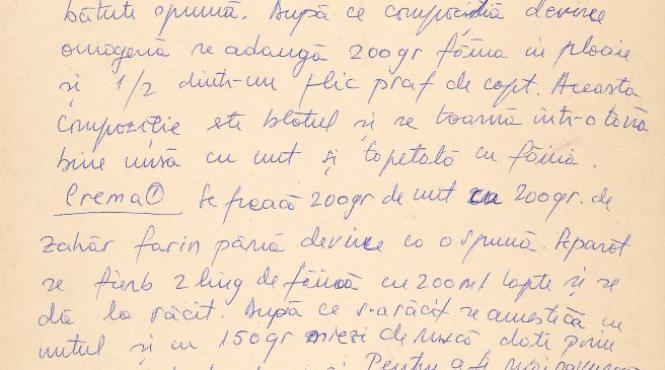 bătute spumă. După ce compoziția devine
omogenă se adaugă 200gr făina in ploaie
și 1/2 dintr-un plic praf de copt. Aceasta
compoziție este blatul și se toarnă intr-o tavă
bine unsă cu unt și tapetată cu făină.
Crema ① Se freacă 200gr de unt cu 200gr. de
zahăr farin până devine ca o spumă. Separat
se fierb 2 ling de făină cu 200ml lapte și se
dă la răcit. După ce s-a răcit se amestecă cu
untul și cu 150gr miezi de nucă date prin
și Pentru a fi mai